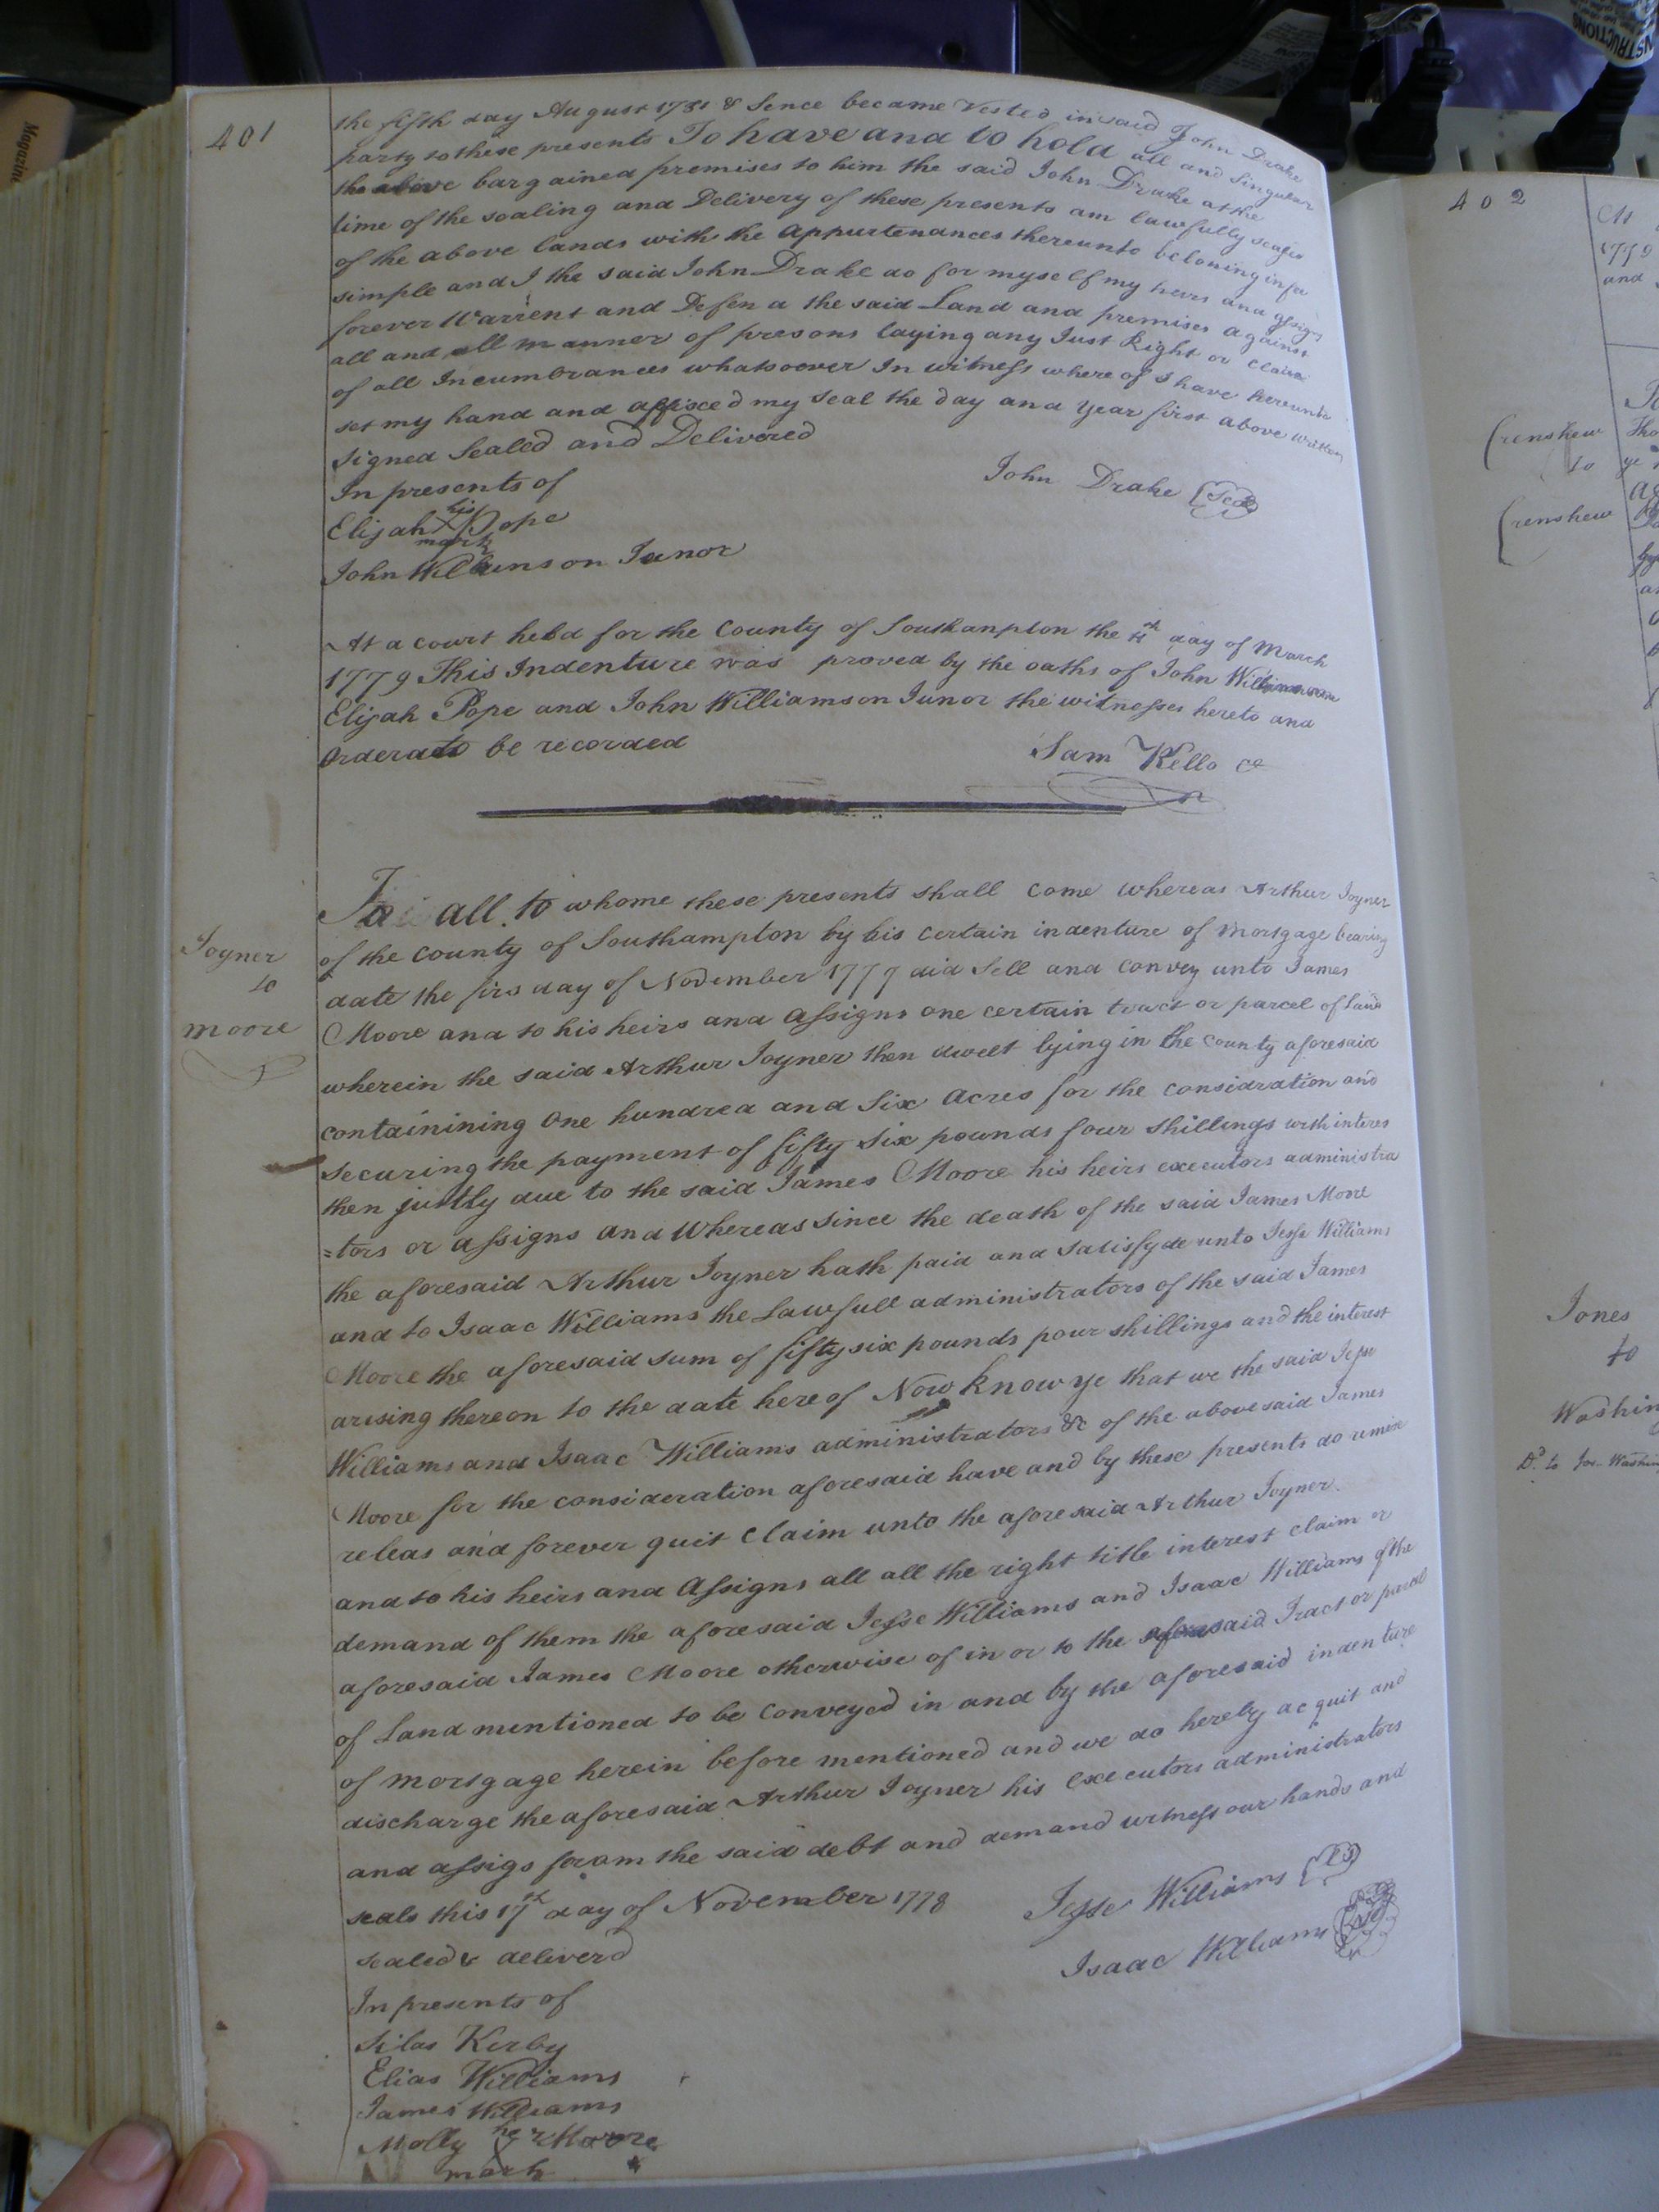 401
the fifth day August 1751 & Sence became Vested in said John Drake
party to these presents To have and to hold all and Singular
the above bargained premises to him the said John Drake at the
time of the sealing and Delivery of these presents am lawfully
of the above lands with the Appurtenances thereunto beloning in fee
simple and I the said John Drake do for myself my heirs and assigns
forever Warrent and Defend the said Land and premises against
all and all manner of presons laying any Just Right or claim
of all Incumbrances whatsoever In witness where of I have hereunto
set my hand and affixed my Seal the day and year first above written
Signed Sealed and Delivered
In presents of
John Drake Seal
his
Elijah X Pope
mark
John Junor
At a court held for the County of Southanpton the day of March
1779 This Indenture was proved by the oaths of John
Elijah Pope and John Williamson Junor the witnesses hereto and
Orderd to be recorded
Sam Kello
Joyner
to
moore
To all to whome these presents shall come whereas Arthur Joyner
of the county of Southampton by his certain indenture of mortgage bearing
date the firs day of November 1777 did Sell and convey unto James
Moore and to his heirs and assigns one certain tract or parcel of Land
wherein the said Arthur Joyner then dwelt lying in the county aforesaid
containining One hundred and Six acres for the considration and
securing the payment of fifty six pounds four shillings with interes
then justly due to the said James Moore his heirs executors administra
=tors or assigns and Whereas since the death of the said James Moore
the aforesaid Arthur Joyner hath paid and satisfyde unto Jesse Williams
and to Isaac Williams the Lawfull administrators of the said James
Moore the aforesaid sum of fifty six pounds pour shillings and the interest
arising thereon to the date here of Now know ye that we the said Jesse
Williams and Isaac Williams administrators &c of the above said James
Moore for the consideration aforesaid have and by these presents do remise
releas and forever quit Claim unto the aforesaid Arthur Joyner
and to his heirs and Assigns all all the right title interest claim or
demand of them the aforesaid Jesse Williams and Isaac Williams of the
aforesaid James Moore otherwise of in or to the aforesaid Tract or parcel
of Land mentioned to be Conveyed in and by the aforesaid indenture
of mortgage herein before mentioned and we do hereby acquit and
discharge the aforesaid Arthur Joyner his executors administrators
and assigs from the said debt and demand witness our hands and
seals this 17th day of November 1778
Jesse Williams LS
sealed & deliverd
Isaac Williams
In presents of
Silas Kerby
Elias Williams
James Williams
her
Molly X Moore
mark
402
At
1779
and
Crenshew
to
Crenshew
Jones
to
Washin